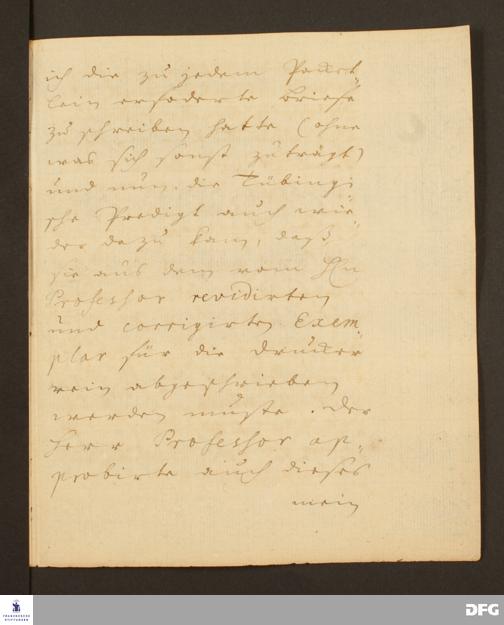 ich die zu jedem Packet-
lein erfoderte briefe
zu schreiben hatte (ohne
was sich sonst zuträgt)
und nun die Tübingi-
sche Predigt auch wie-
der dazu kam, daß
sie aus dem vom Hn
Professor revidirten
und corrigirten Exem-
plar für die drucker
rein abgeschrieben
werden muste. Der
Herr Professor ap-
probirte auch dieses
mein
FRANCKESCHE
STIFTUNGEN
DFG